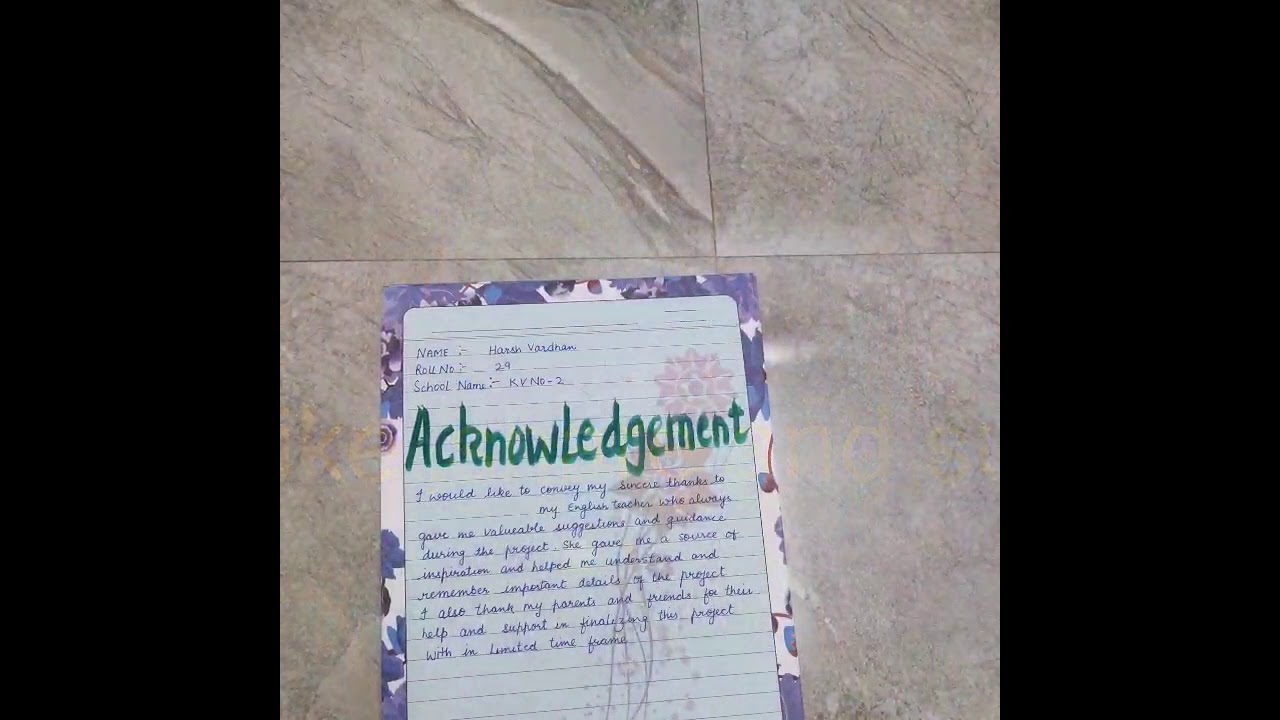 NAME :- Harsh Vardhan
Roll No :- 29
School Name:- KV No-2
Acknowledgement
I would like to convey my sincere thanks to
my English teacher who always
gave me valueable suggestions and guidance
during the project. She gave me a source of
inspiration and helped me understand and
remember important details of the project
I also thank my parents and friends for their
help and support in finalizing this project
with in limited time frame